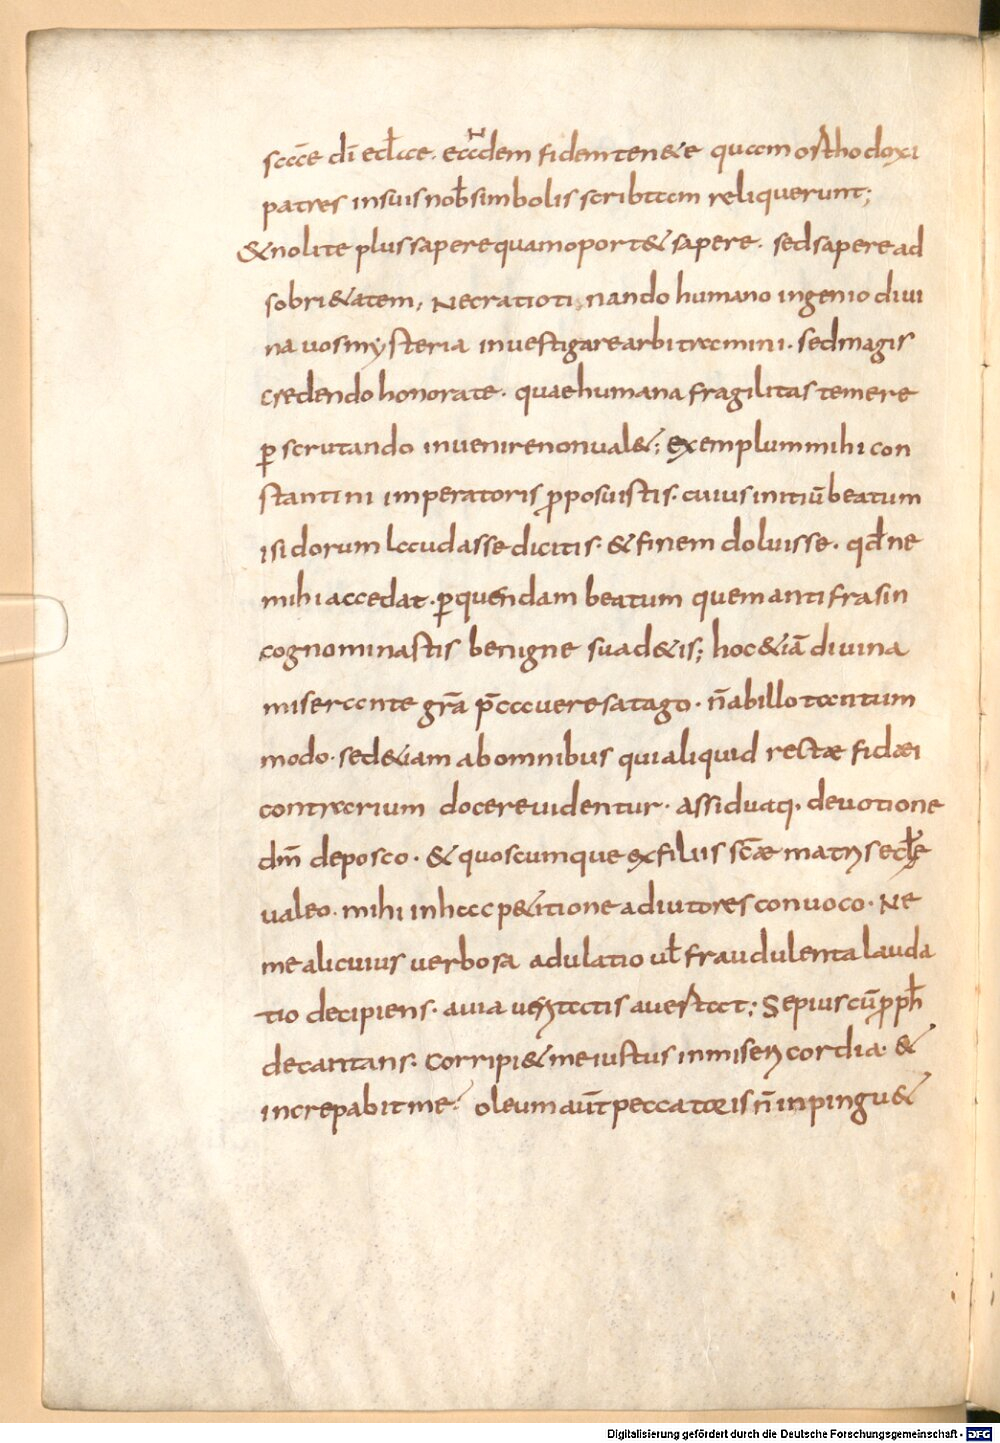 sc̄ae dī ecl̄ae. eandem fidem ten&e quam orthodoxi
patres insuis nob̄ simbolis scribtam reliquerunt;
& nolite plus sapere quam oport& sapere. sed sapere ad
sobri&atem, Nec ratiotinando humano ingenio diui
na uos mysteria inuestigare arbitramini. sed magis
credendo honorate. quae humana fragilitas temere
ꝑscrutando inuenire non ual&; exemplum mihi con
stantini imperatoris ꝓposuistis. cuius initiū beatum
isidorum laudasse dicitis. & finem doluisse. qd̄ ne
mihi accedat. ꝑ quendam beatum quem antifrasin
cognominastis benigne suad&is; hoc &iā diuina
miserante grā p̄cauere satago. n̄ ab illo tantum
modo. sed &iam ab omnibus qui aliquid rectæ fidæi
contrarium docere uidentur. assiduaq. deuotione
dm̄ deposco. & quoscumque ex filus sc̄æ matris ecl̄ę
ualeo. mihi in hac p&itione adiutores conuoco. Ne
me alicuius uerbosa adulatio ul̄ fraudulenta lauda
tio decipiens. a uia ueritatis auertat; Sepius cū ꝓph̄
decantans. Corripi& me iustus in misericordia. &
increpabit me. oleum aūt peccatoris n̄ inpingu&